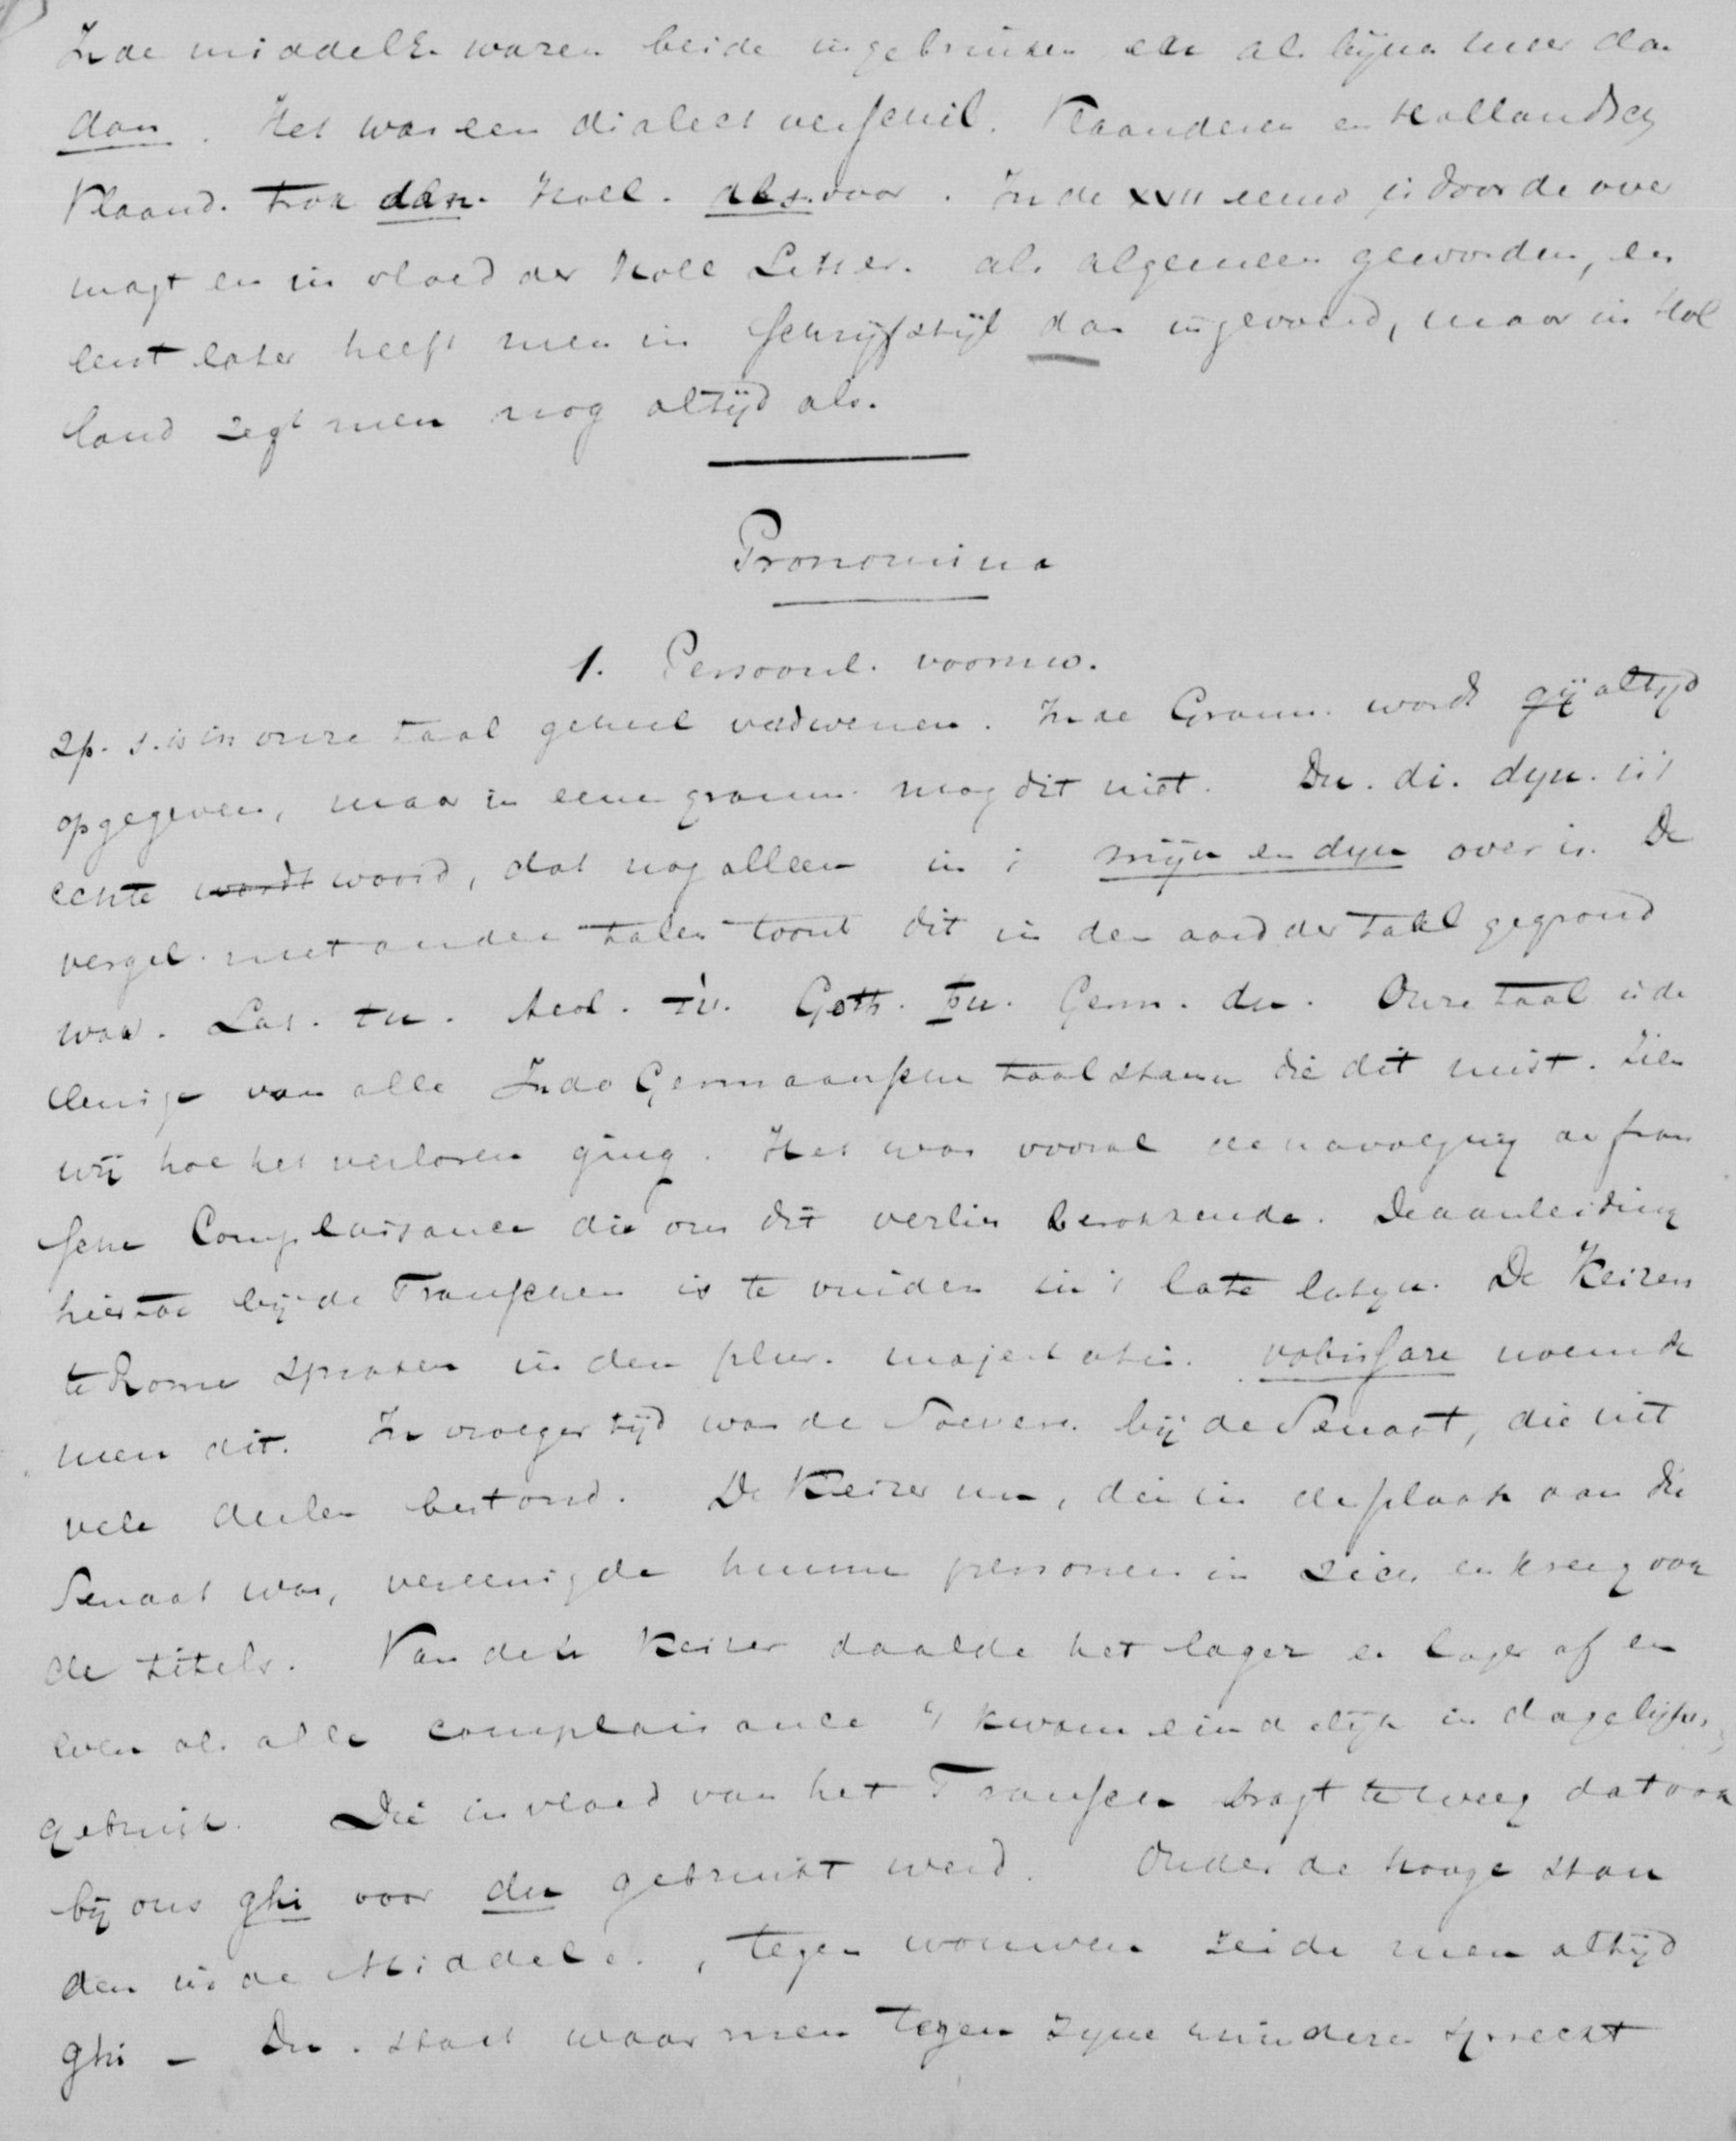 In de middelE. waren beide in gebruik en als bijna meer dan
dan. Het was een dialect verschil. Vlaanderen en Hollandsch
Vlaand. trok dan. Holl. als voor. In de XVII eeuw is door de over
magt en invloed der Holl Letter. als algemeen geworden, en
eerst later heeft men in schrijfstijl dan ingevoerd, maar in Hol
land zegt men nog altijd als.
Pronomina
1. Persoonl. voornw.
2p. s. is in onze taal geheel verdwenen. In de Gramm. wordt gij altijd
opgegeven, maar in eene gramm. mag dit niet. Du. di. dyn. is 't
echte wordt woord, dat nog alleen in 't mijn en dyn over is. De
vergel. met andere talen toont dit in den aard der taal gegrond
was. Lat. tu. Aeol. τύ. Goth. þu. Germ. du. Onze taal is de
eenige van alle Indo Germaanschen taalstam die dit mist. Zien
wij hoe het verloren ging. Het was vooral de navolging der fran
sche Complaisance die ons dit verlies berokkende. De aanleiding
hiertoe bij de Franschen is te vinden in 't late latijn. De Keizers
te Rome spraken in den plur. majestatis. vobisare noemde
men dit. In vroeger tijd was de Soever. bij de Senaat, die uit
vele deelen bestond. De Keizer nu, die in de plaats van die
Senaat was, vereenigde hunne personen in zich en kreeg ook
de titels. Van den Keizer daalde het lager en lager af en
even als alle complaisance 't kwam eindelijk in dagelijksch
gebruik. Die invloed van het Fransch bragt te weeg dat ook
bij ons ghi voor du gebruikt werd. Onder de hooge stan
den in de Middele., tegen vrouwen zeide men altijd
ghi – Du. staat waar men tegen zyne mindere spreekt